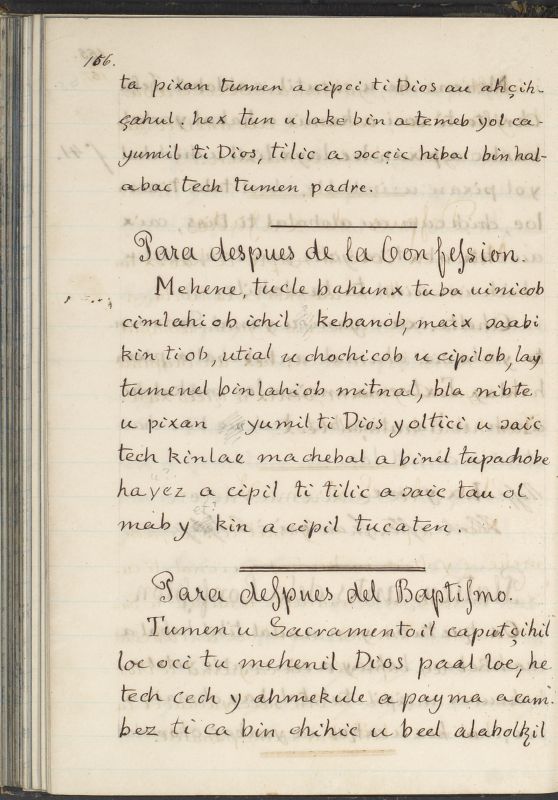 156.
ta pixan tumen a cipci ti Dios au ahçih-
çahul: hex tun u lake bin a temeb yol ca-
yumil ti Dios, tilic a ɔocçic hibal bin hal-
abac tech tumen padre.
Para despues de la Confeſsion.
Mehene, tucle bahunx tuba uinicob
cimlahiob ichil kebanob, maix ɔaabi
kin tiob, utial u chochicob u cipilob, lay
tumenel binlahiob mitnal, bla nibte
u pixan yumil ti Dios yoltici u ɔaic
tech kinlae machebal a binel tupachobe
hayez a cipil ti tilic a ɔaic tau ol
mab y kin a cipil tucaten.
Para deſpues del Baptiſmo.
Tumen u Sacramentoil caputçihil
loe oci tu mehenil Dios paal loe, he
tech cech y ahmekule a payma acam-
bez ti ca bin chihic u beel alabolꝁil